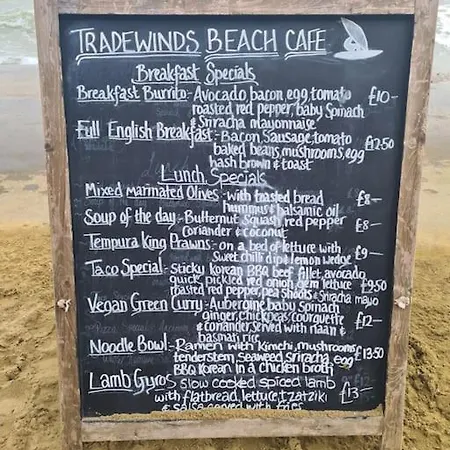 TRADEWINDS BEACH CAFE
Breakfast Specials
Breakfast Burrito:- Avocado, bacon, egg, tomato £10-
roasted red pepper, baby Spinach
& Sriracha mayonnaise
Full English Breakfast:- Bacon, Sausage, tomato £12.50
baked beans, mushrooms, egg
hash brown & toast
Lunch Specials
Mixed Marinated Olives:- with toasted bread £8-
hummus & balsamic oil
Soup of the day:- Butternut Squash, red pepper £8-
Coriander & coconut
Tempura King Prawns:- on a bed of lettuce with £9-
Sweet chilli dip & lemon wedge
Taco Special:- Sticky Korean BBQ beef fillet, avocado, £9.50
quick pickled red onion, gem lettuce
roasted red pepper, pea shoots & Sriracha mayo
Vegan Green Curry:- Aubergine, baby Spinach £12-
ginger, chickpeas, courguette
& coriander, served with naan &
basmati rice
Noodle Bowl:- Ramen with kimchi, mushrooms, £13.50
tenderstem, seaweed, sriracha, egg
BBQ Korean in a chicken broth
Lamb Gyros slow cooked spiced lamb £13-
with flatbread, lettuce, tzatziki
& salsa served with fries